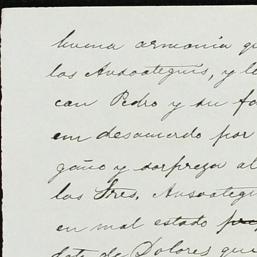 buena armonía qu
los Ausoateguis, y l
can Pedro y su fa
em desacuerdo por
gaño y sorpresa al
los Sres. Ausoategu
en mal estado
dote de Dolores que